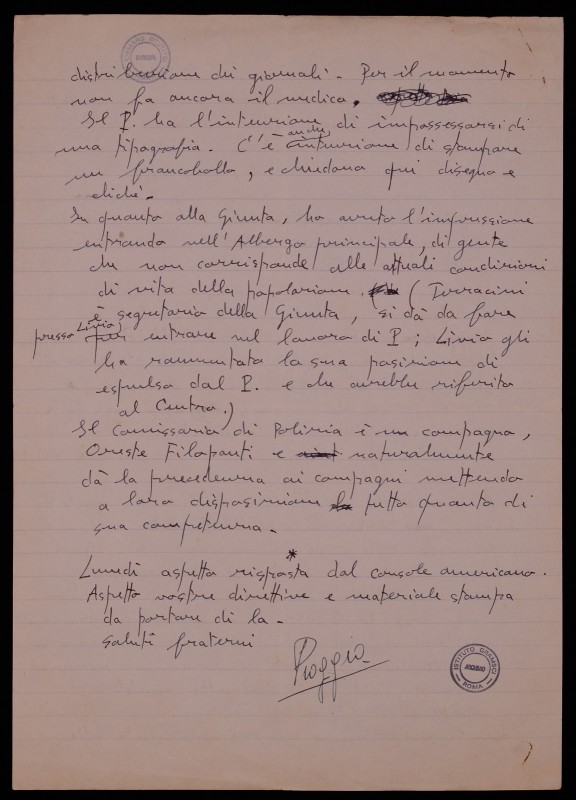 distribuzione dei giornali - Per il momento
non fa ancora il medico.
Il P. ha l'intenzione di impossessarsi di
una tipografia. C'è anche intenzione di stampare
un francobollo, e chiedono qui disegno e
cliché.
In quanto alla Giunta, ha avuto l'impressione
entrando nell'Albergo principale, di gente
che non corrisponde alle attuali condizioni
di vita della popolazione. (Terracini
è segretario della Giunta, si dà da fare
presso Livio entrare nel lavoro di P; Livio gli
ha rammentato la sua posizione di
espulso dal P. e che avrebbe riferito
al Centro.)
Il Comissario di Polizia è un compagno,
Oreste Filopanti e naturalmente
dà la precedenza ai compagni mettendo
a loro disposizione tutto quanto di
sua competenza.-
Lunedì aspetto risposta dal console americano.
*
Aspetto vostre direttive e materiale stampa
da portare di la -
Saluti fraterni
Poggio
ISTITUTO GRAMSCI
ARCHIVIO
ROMA